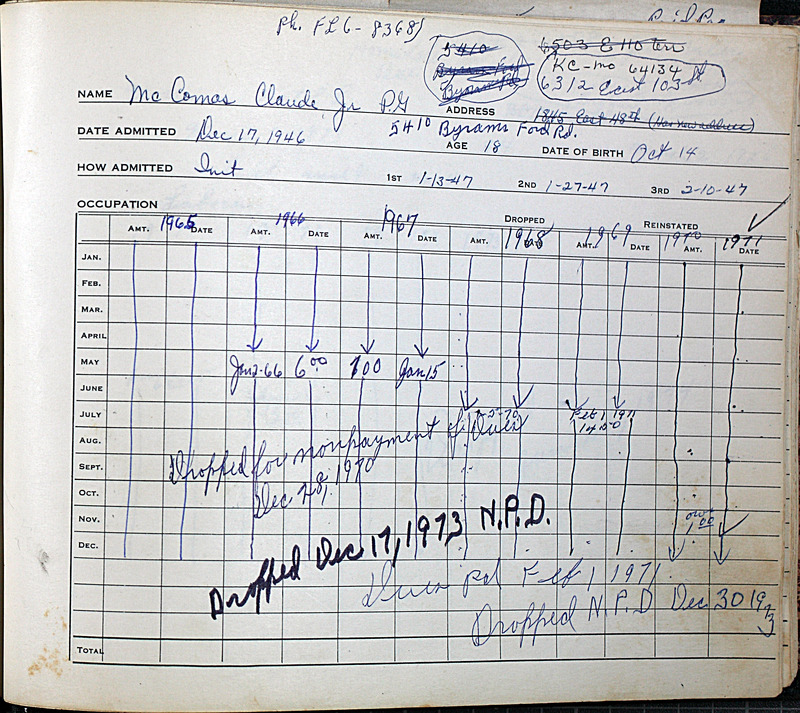 Ph. FL6-8368
5410
Byram Ford
6503 E 110 Terr
KC-Mo 64134
6312 East 103 St
NAME Mc Comas Claude, Jr PG ADDRESS 1845 East 48th (Has new address)
5410 Byrams Ford Rd.
DATE ADMITTED Dec 17, 1946 AGE 18 DATE OF BIRTH Oct 14
HOW ADMITTED Init 1ST 1-13-47 2ND 1-27-47 3RD 2-10-47
OCCUPATION DROPPED REINSTATED
1965 1966 1967 1968 1969 1970 1971
AMT. DATE AMT. DATE AMT. DATE AMT. DATE AMT. DATE AMT. DATE
JAN.
FEB.
MAR.
APRIL
MAY Jan 2-66 6 00 7 00 Jan 15
JUNE
JULY 2-5-70 Feb 1 1971
14 50
AUG. Dropped for nonpayment of Dues
SEPT. Dec 28, 1970
OCT.
NOV. owe
1 00
DEC. Dropped Dec 17, 1973 N.P.D.
Dues pd Feb 1 1971
Dropped N.P.D Dec 30 1973
TOTAL